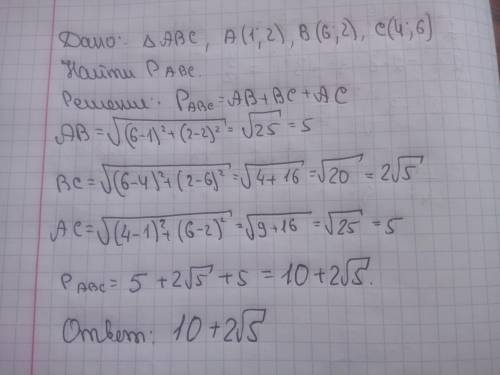 Дано: △ABC, A(1;2), B(6;2), C(4;6)
Найти P ABC.
Решение: P ABC = AB + BC + AC
AB = √(6-1)² + (2-2)² = √25 = 5
BC = √(6-4)² + (2-6)² = √4+16 = √20 = 2√5
AC = √(4-1)² + (6-2)² = √9+16 = √25 = 5
P ABC = 5 + 2√5 + 5 = 10 + 2√5.
Ответ: 10 + 2√5